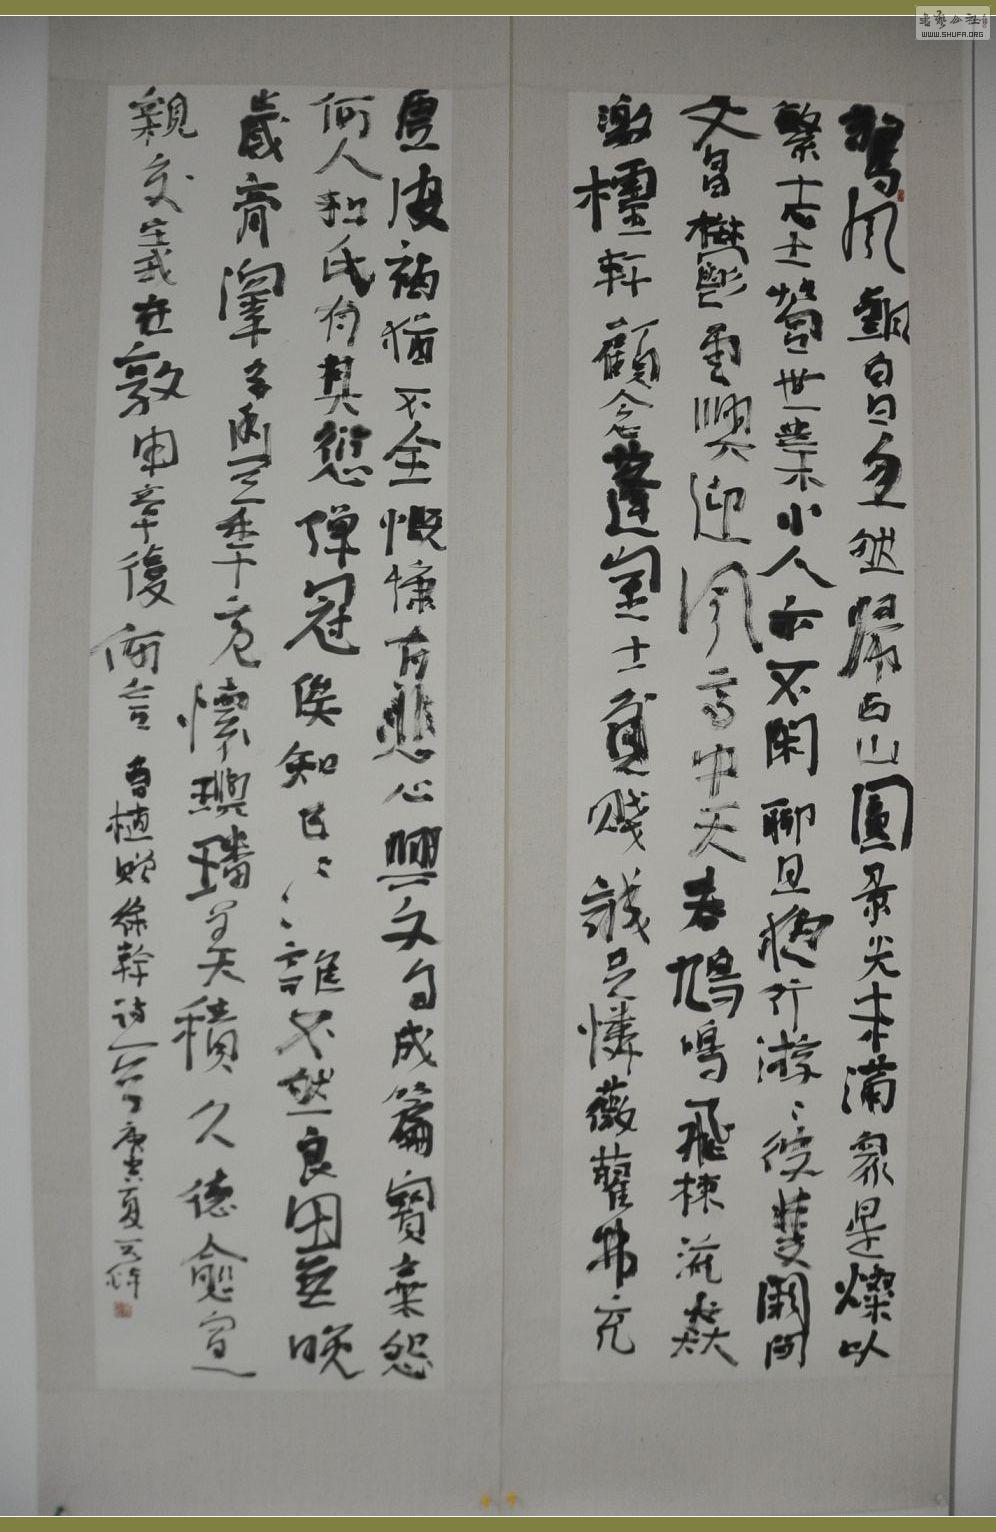 驚風飄白日忽然歸西山圓景光未滿眾星燦以
繁志士營世業小人亦不閑聊且夜行游〻彼雙闕間
文昌鬱雲興迎風高中天春鳩鳴飛棟流猋
激櫺軒顧念蓬室士貧賤誠足憐薇藿弗充
虛皮褐猶不全慨慷有悲心興文自成篇寶棄怨
何人和氏有其愆彈冠俟知己〻〻誰不然良田無晚
歲膏澤多豐年亮懷璵璠美積久德愈宣
親交義在敦申章復何言 曹植贈徐幹詩一首 庚寅夏
WWW.SHUFA.ORG